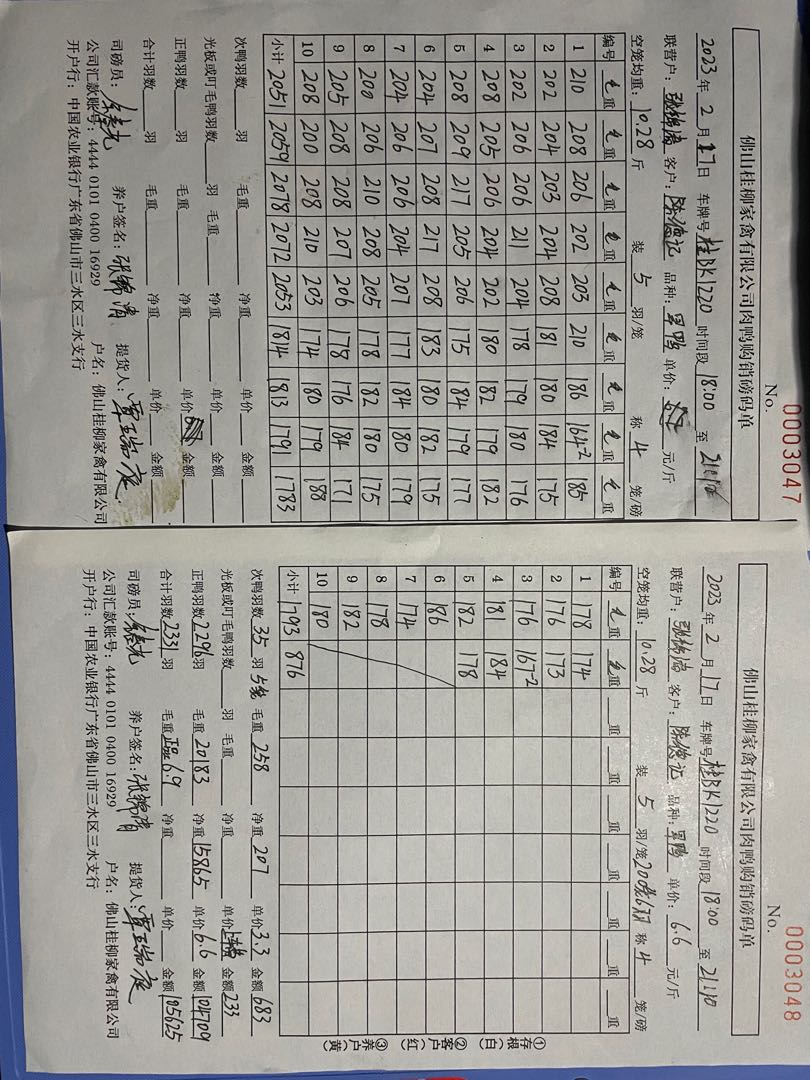 佛山桂柳家禽有限公司肉鸭购销磅码单
No. 0003047
2023年 2月 17日 车牌号桂BK1220 时间段 18:00 至
联营户：张锦清 客户：陈俊记 品种： 单价： 元/斤
空笼均重：10.28斤 装 5 羽/笼 称 4 笼/磅
编号 毛重 毛重 毛重 毛重 毛重 毛重 毛重 毛重 毛重
1 210 208 206 202 203 210 186 164-2 185
2 202 204 203 204 208 181 180 184 175
3 202 206 206 211 204 178 179 180 176
4 208 205 206 204 202 180 182 179 182
5 208 209 217 205 206 175 184 179 177
6 204 207 208 217 208 183 180 182 175
7 204 206 206 204 207 177 184 180 179
8 200 206 210 208 205 178 182 180 175
9 205 208 208 207 206 178 176 184 171
10 208 200 208 210 203 174 180 179 188
小计 2051 2059 2078 2072 2053 1814 1813 1791 1783
次鸭羽数 羽 毛重 净重 单价 金额
光板或叮毛鸭羽数 羽 毛重 净重 单价 金额
正鸭羽数 羽 毛重 净重 单价 金额
合计羽数 羽 毛重 净重 单价 金额
司磅员： 养户签名：张锦清 提货人：覃瑞庭
公司汇款账号：4444 0101 0400 16929 户名：佛山桂柳家禽有限公司
开户行：中国农业银行广东省佛山市三水区三水支行
佛山桂柳家禽有限公司肉鸭购销磅码单
No. 0003048
2023年 2月 17日 车牌号桂BK1220 时间段 18:00 至 21:10
联营户：张锦清 客户：陈俊记 品种： 单价：6.6 元/斤
空笼均重：10.28斤 装 5 羽/笼 称 4 笼/磅
编号 毛重 毛重 重 重 重 重 重 重 重
1 178 174
2 176 173
3 176 167-2
4 181 184
5 182 178
6 186
7 174
8 178
9 182
10 180
小计 1793 876
次鸭羽数 35 羽 毛重 258 净重 207 单价 3.3 金额 683
光板或叮毛鸭羽数 羽 毛重 净重 单价 金额 233
正鸭羽数 2296 羽 毛重 20183 净重 15865 单价 6.6 金额 104709
合计羽数 2331 羽 毛重 净重 单价 金额 105625
司磅员： 养户签名：张锦清 提货人：覃瑞庭
公司汇款账号：4444 0101 0400 16929 户名：佛山桂柳家禽有限公司
开户行：中国农业银行广东省佛山市三水区三水支行
①存根（白） ②客户（红） ③养户（黄）